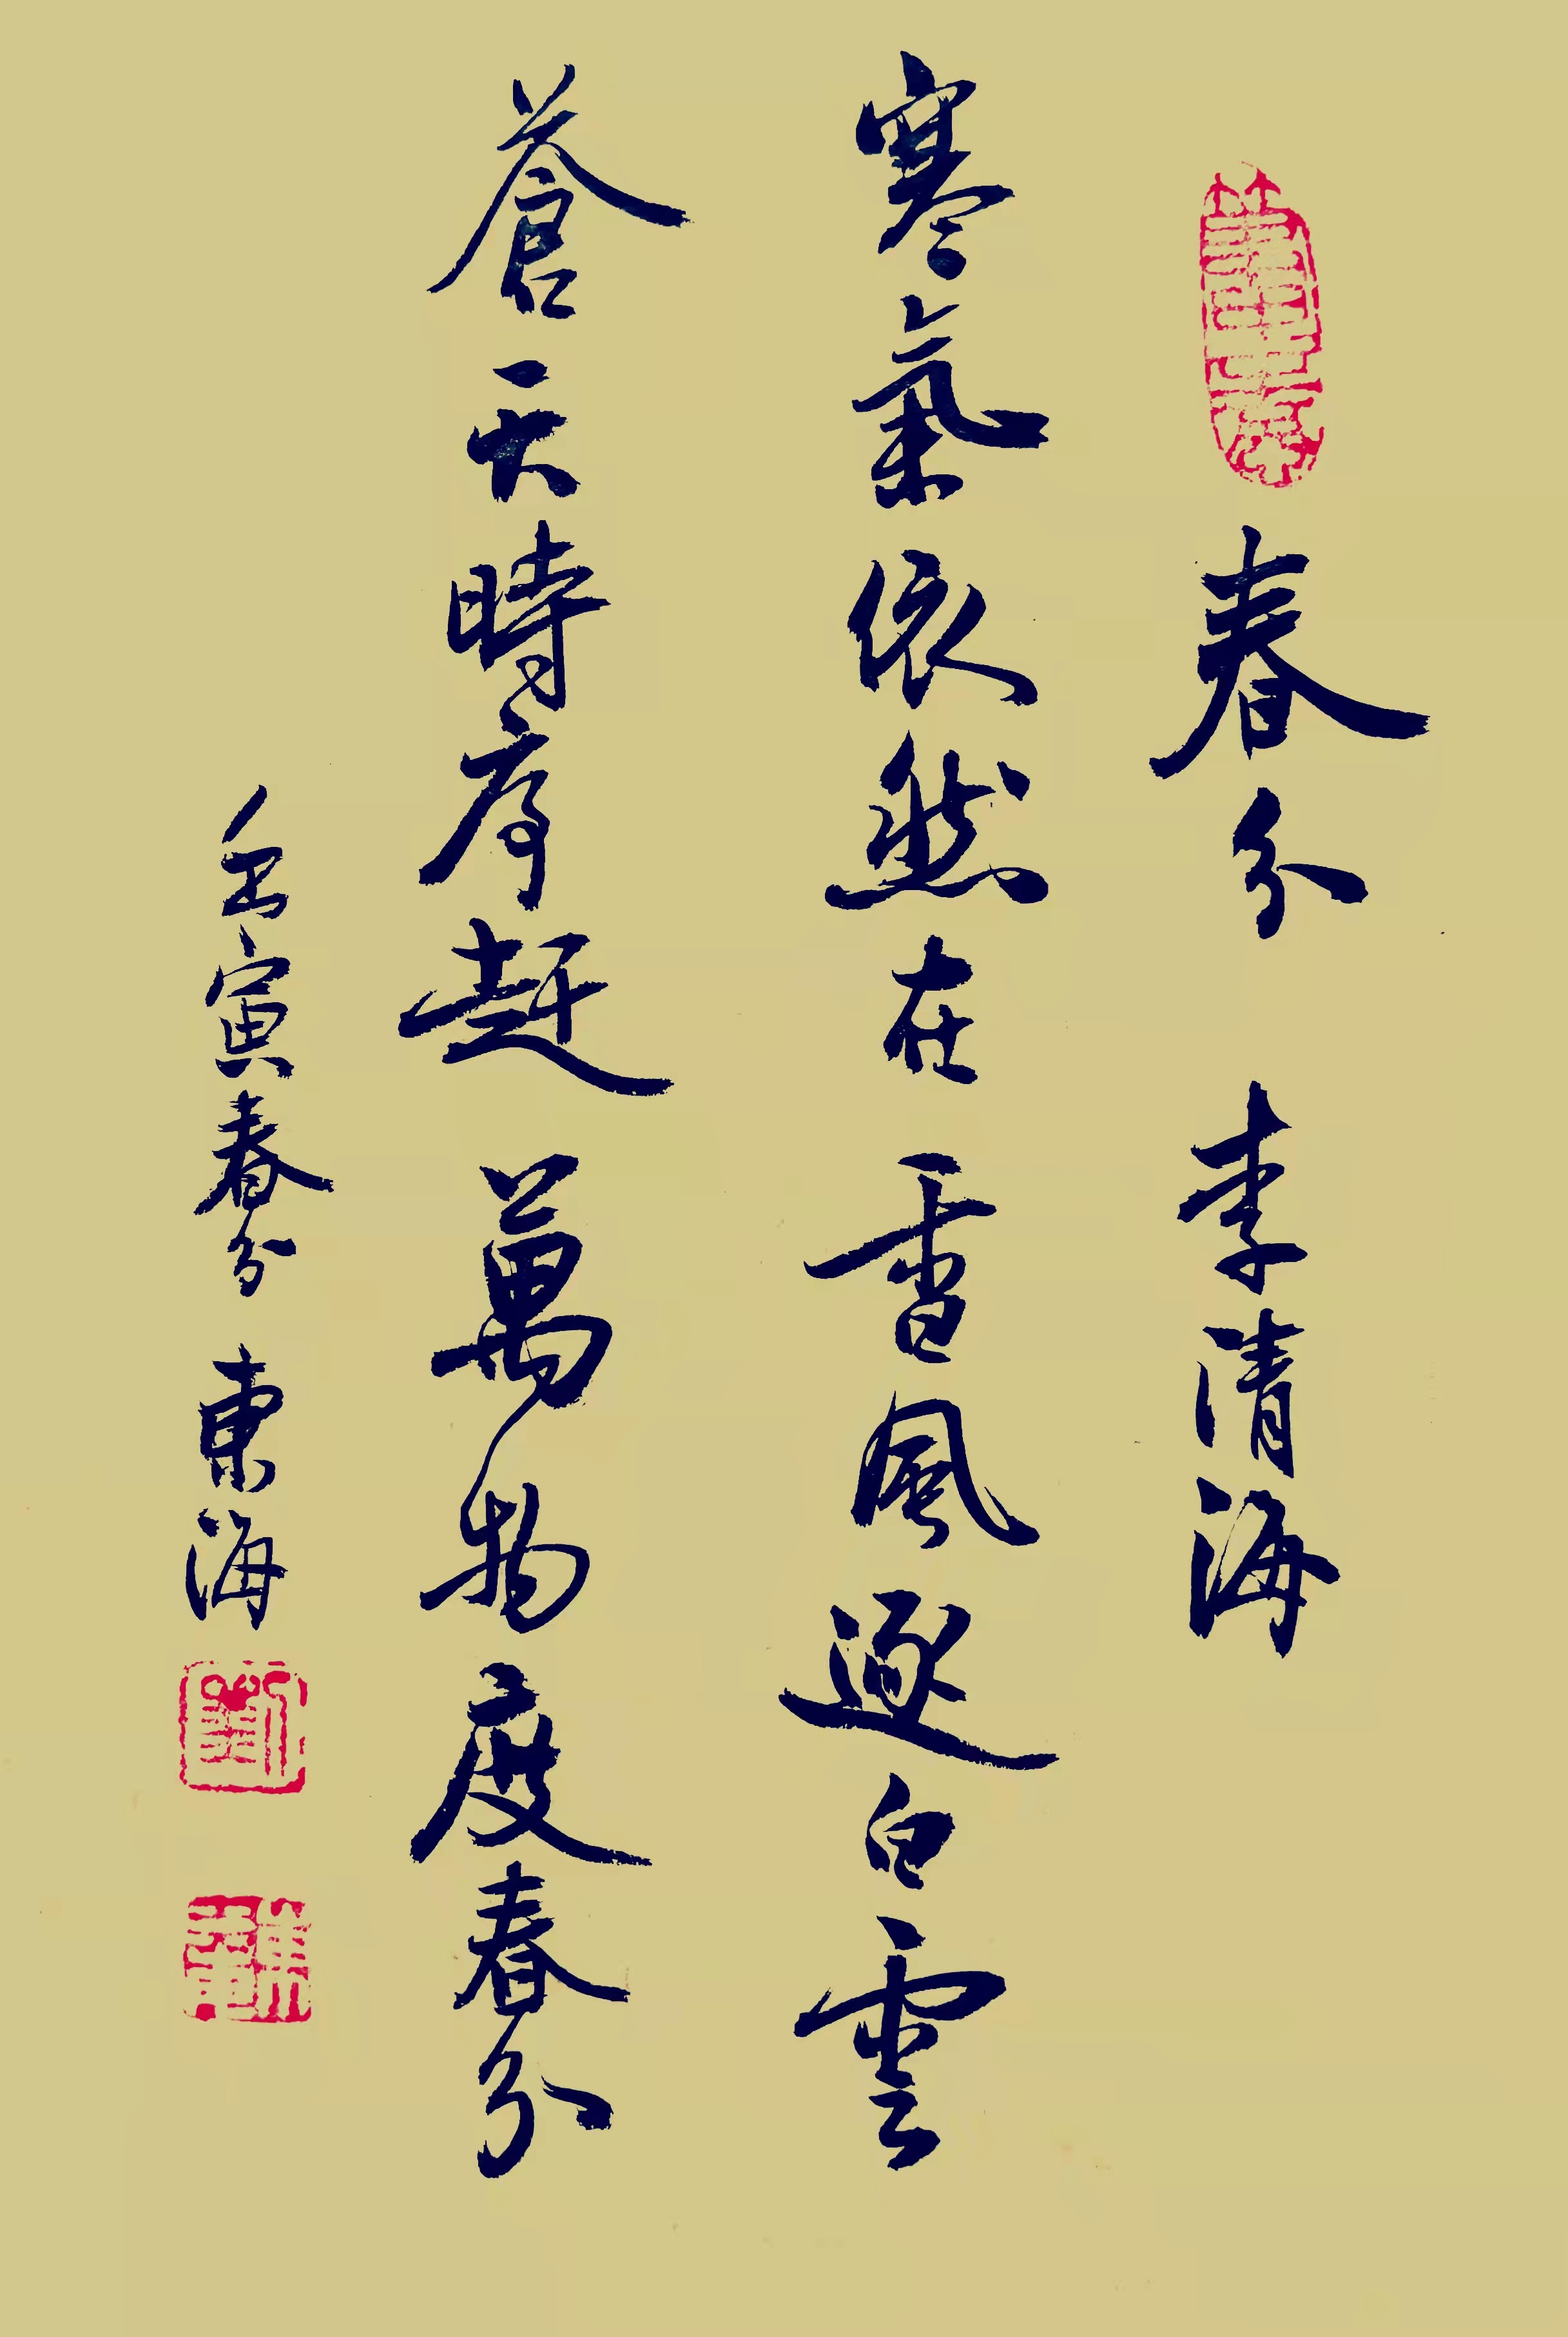 春分 李清海
寒氣依然在雪風逐白雲
蒼天時序赶萬物度春分
壬寅春分 東海